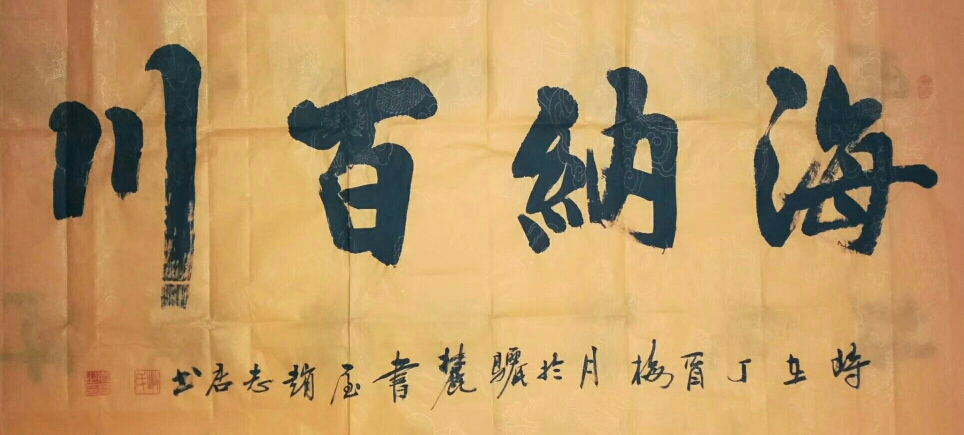 海納百川
時在丁酉梅月於驪麓書屋趙志君书